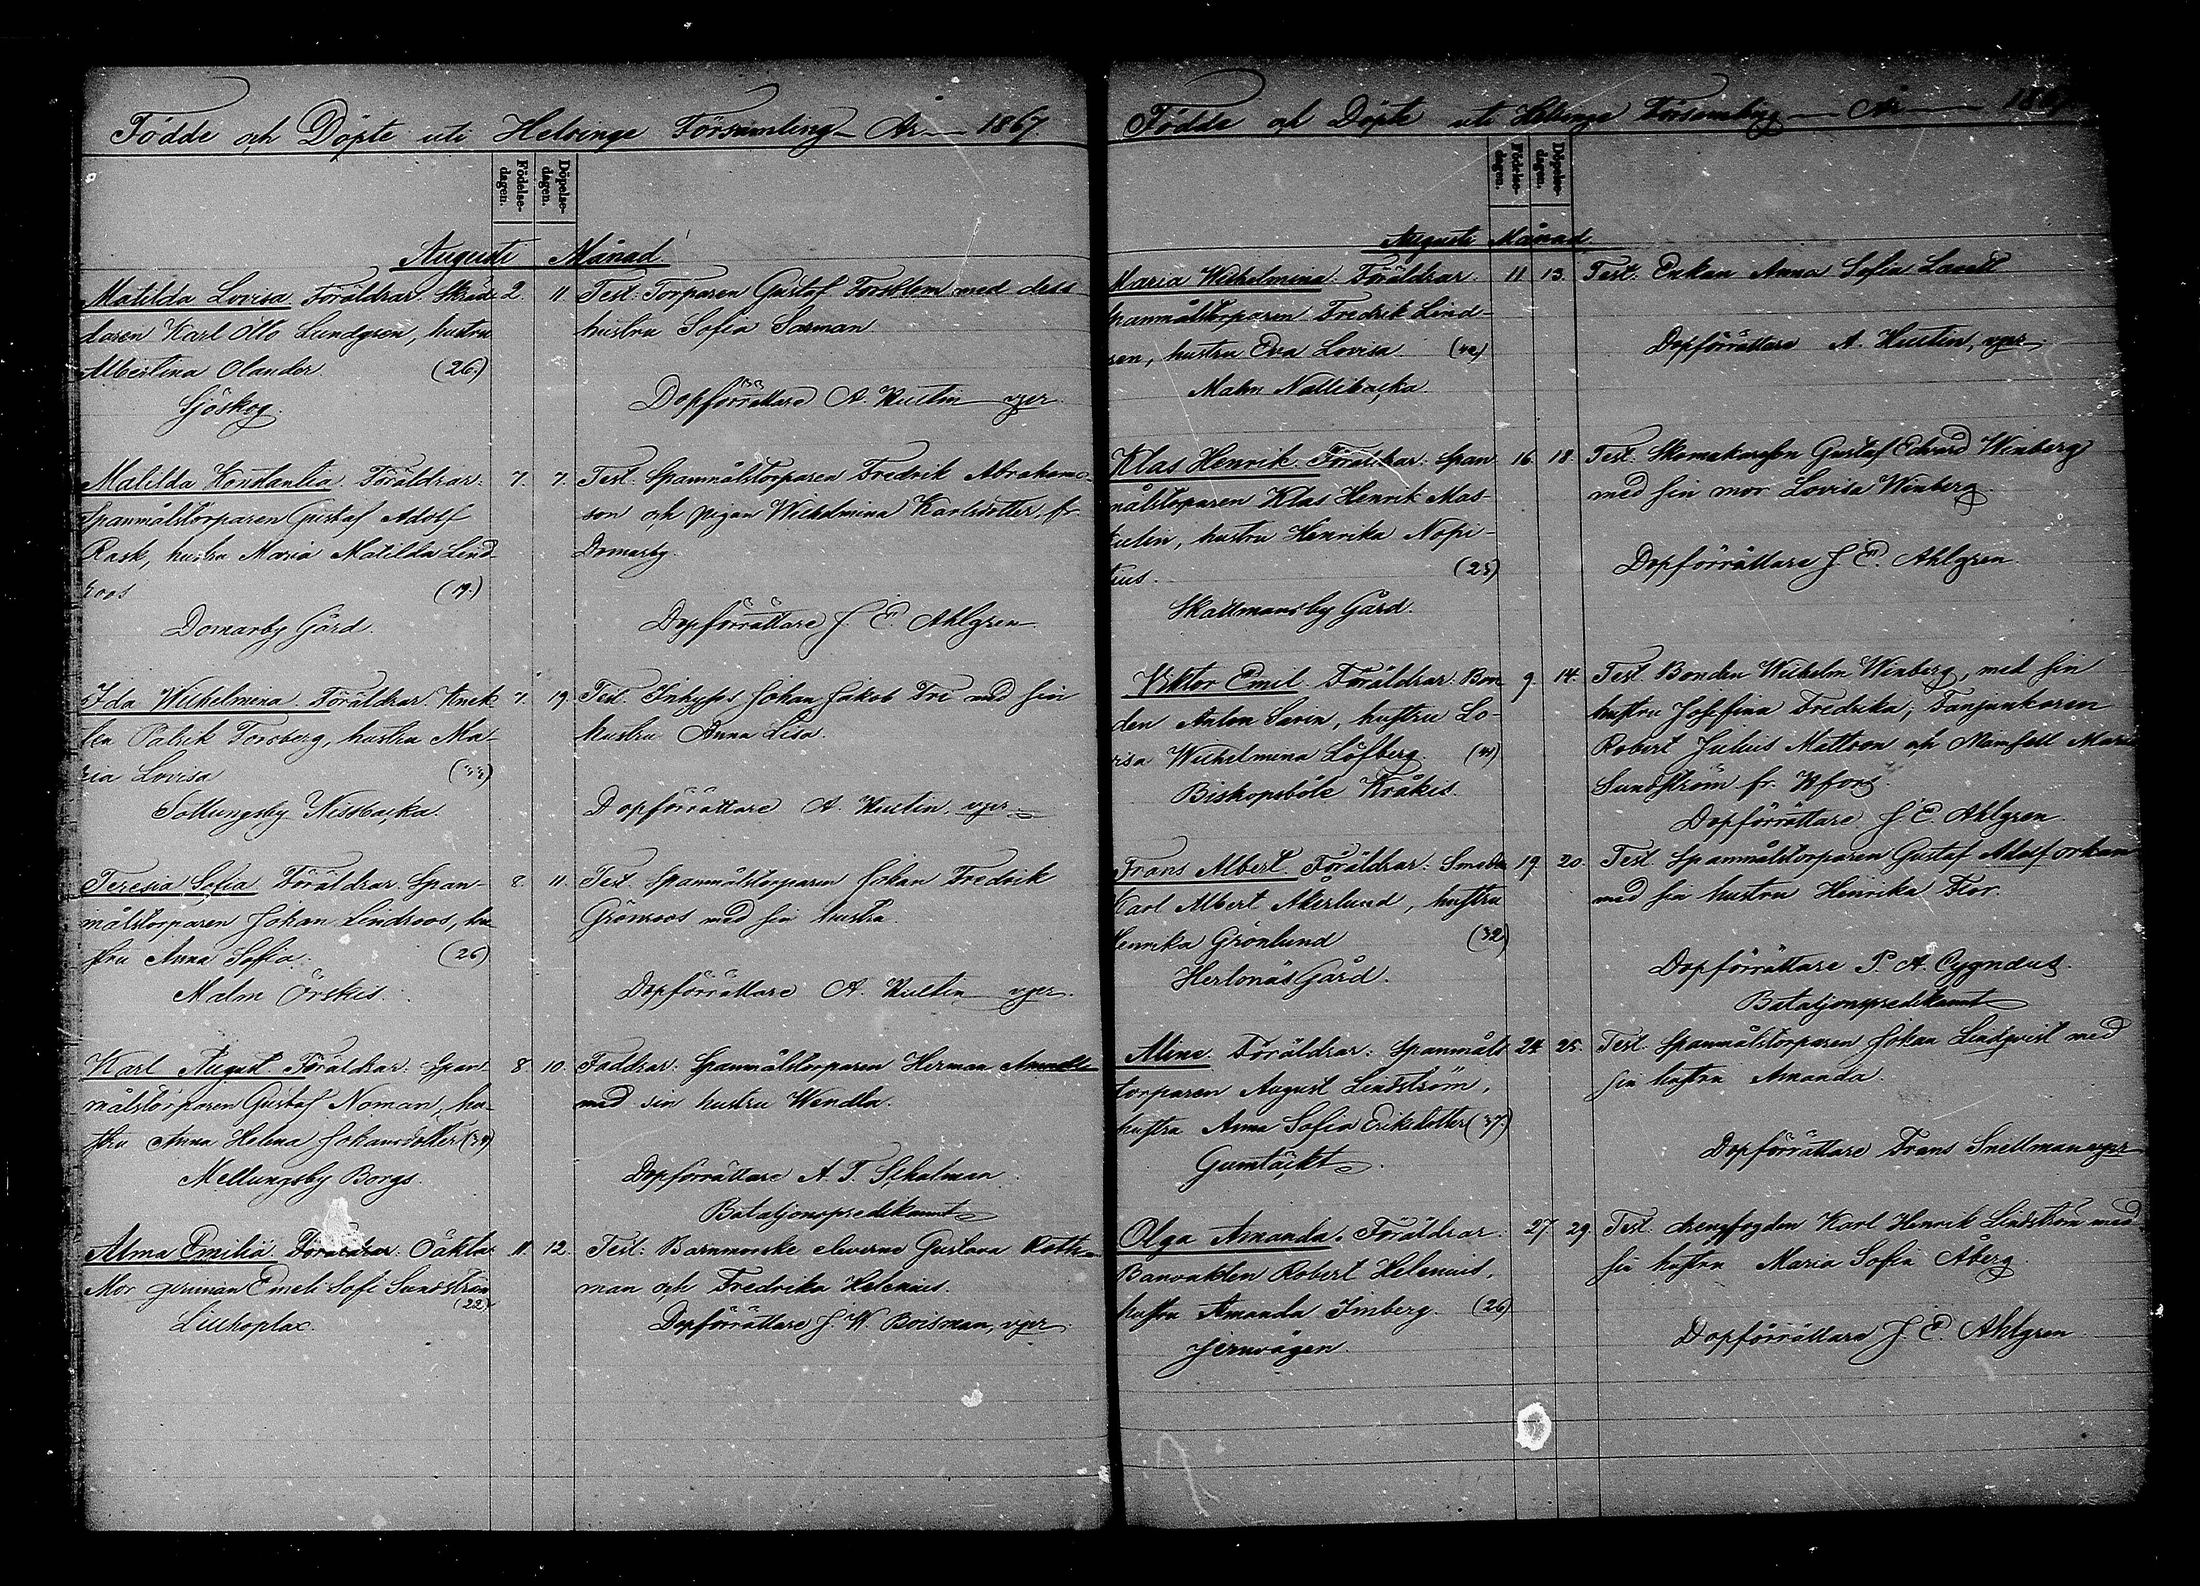 Födde och Döpte uti Helsinge Församling År 1867.
Födelse-
dagen.
Döpelse-
dagen.
Augusti Månad
Matilda Lovisa Föräldrar: Skräd- 2. 11. Test: Torparen Gustaf Forsblom med dess
daren Karl Otto Lundgren, hustru hustru Sofia
Albertina Olander. (26.)
Sjöskog. Dopförrättare A. Hultin vpr.
Matilda Konstantia. Föräldrar: 7. 7. Test. Spanmålstorparen Fredrik Abrahams-
Spanmålstorparen Gustaf Adolf son och pigan Wilhelmina Karlsdotter, fr.
Rask, hustru Maria Matilda Lind- Domarby.
roos
Domarby Gård. Dopförrättare J. E. Ahlgren
Ida Wilhelmina. Föräldrar. Knek- 7. 19. Test. Inhyses Johan Jakob Fri med sin
ten Patrik Forsberg, hustru Ma- hustru Anna Lisa.
ria Lovisa (33)
Sottungsby Nissbacka. Dopförrättare A. Hultin, vpr.
Teresia Sofia Föräldrar. Span- 8. 11. Test. Spanmålstorparen Johan Fredrik
målstorparen Johan Lindroos, hu- Grönroos med sin hustru.
stru Anna Sofia. (26)
Malm Örskis. Dopförrättare A. Hultin vpr.
Karl August. Föräldrar. Span- 8. 10. Faddrar: Spanmålstorparen Herman
målstorparen Gustaf Noman, hu- med sin hustru Wendla.
stru Anna Helena Johansdotter
Mellungsby Borgs. Dopförrättare A. T. Schalman
Bataljonspredikant
Alma Emilia Föräldrar. Oäkta. 11. 12. Test: Barnmorske eleverne Gustava Roth-
Mor pr: pigan Emeli Sofi Sundström man och Fredrika Helenius.
(22)
Lillhoplax. Dopförrättare J. W. Boisman, vpr.
Födde och Döpte uti Helsinge Församling År 1867
Födelse-
dagen.
Döpelse-
dagen.
Augusti Månad.
Maria Wilhelmina. Föräldrar. 11 13. Test. Enkan Anna Sofia
Spanmålstorparen Fredrik Lind-
ren, hustru Eva Lovisa Dopförrättare A. Hultin, vpr.
Malm Nallibacka.
Klas Henrik. Föräldrar: Span- 16 18. Test. Skomakaresson Gustaf Edvard Winberg
målstorparen Klas Henrik Mas- med sin mor Lovisa Winberg.
kulin, hustru Henrika Nopi-
tius. (25) Dopförrättare J. E. Ahlgren.
Skattmansby Gård.
Viktor Emil. Föräldrar. Bon- 9. 14. Test. Bonden Wilhelm Winberg, med sin
den Anton Savin, hustru Lo- hustru Josefina Fredrika; Fanjunkaren
visa Wilhelmina Löfberg. Robert Julius Mattson och Mamsell Maria
Biskopsböle Kråkis. Sundström fr. Hfors.
Dopförrättare J. E. Ahlgren.
Frans Albert. Föräldrar: Smeden 19. 20. Test. Spanmålstorparen Gustaf Adolf
Karl Albert Åkerlund, hustru med sin hustru Henrika Flor.
Henrika Grönlund (32)
Hertonäs Gård. Dopförrättare P. A. Cygnæus.
Bataljonspredikant
Alina. Föräldrar: Spanmåls- 24. 25. Test. Spanmålstorparen Johan Lindqvist med
torparen August Lindström, sin hustru Amanda.
hustru Anna Sofia Eriksdotter (37.)
Gumtäckt. Dopförrättare Frans Snellman vpr
Olga Amanda. Föräldrar. 27. 29. Test. drengfogden Karl Henrik Lindström med
Banvakten Robert Helenius, sin hustru Maria Sofia Åberg.
hustru Amanda Imberg. (26)
Jernvägen. Dopförrättare J. E. Ahlgren